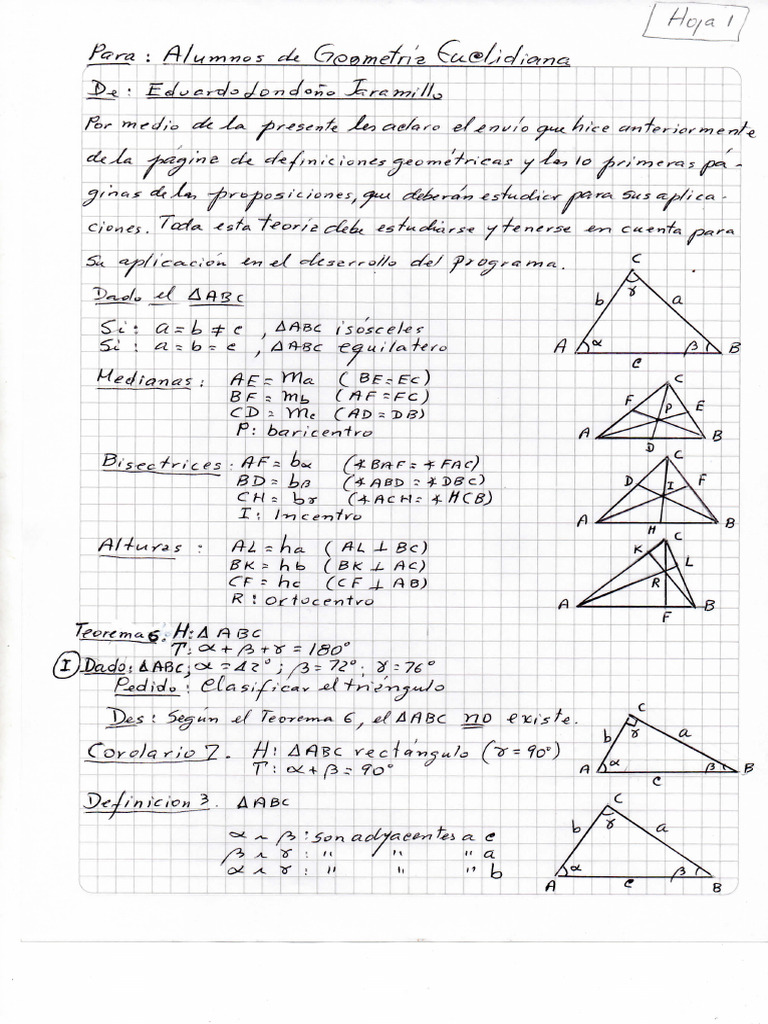 Hoja 1
Para: Alumnos de Geometría Euclidiana
De: Eduardo Londoño Jaramillo
Por medio de la presente les aclaro el envío que hice anteriormente
de la página de definiciones geométricas y las 10 primeras pá-
ginas de las proposiciones, que deberán estudiar para sus aplica-
ciones. Toda esta teoría debe estudiarse y tenerse en cuenta para
su aplicación en el desarrollo del programa.
Dado el △ABC
Si: a = b ≠ c , △ABC isósceles
Si: a = b = c , △ABC equilatero
C
b γ a
A α β B
c
Medianas: AE = ma (BE = EC)
BF = mb (AF = FC)
CD = mc (AD = DB)
P: baricentro
C
F P E
A D B
Bisectrices: AF = bα (∢BAF = ∢FAC)
BD = bβ (∢ABD = ∢DBC)
CH = bγ (∢ACH = ∢HCB)
I: Incentro
C
D I F
A H B
Alturas: AL = ha (AL ⊥ BC)
BK = hb (BK ⊥ AC)
CF = hc (CF ⊥ AB)
R: ortocentro
C
K L
R
A F B
Teorema 6: H: △ABC
T: α + β + γ = 180°
I Dado: △ABC; α = 42°; β = 72°; γ = 76°
Pedido: Clasificar el triángulo
Des: Según el Teorema 6, el △ABC no existe.
Corolario 7. H: △ABC rectángulo (γ = 90°)
T: α + β = 90°
C
b γ a
A α β B
c
Definicion 3. △ABC
α ∧ β: son adyacentes a c
β ∧ γ: " " " a
α ∧ γ: " " " b
C
b γ a
A α β B
c